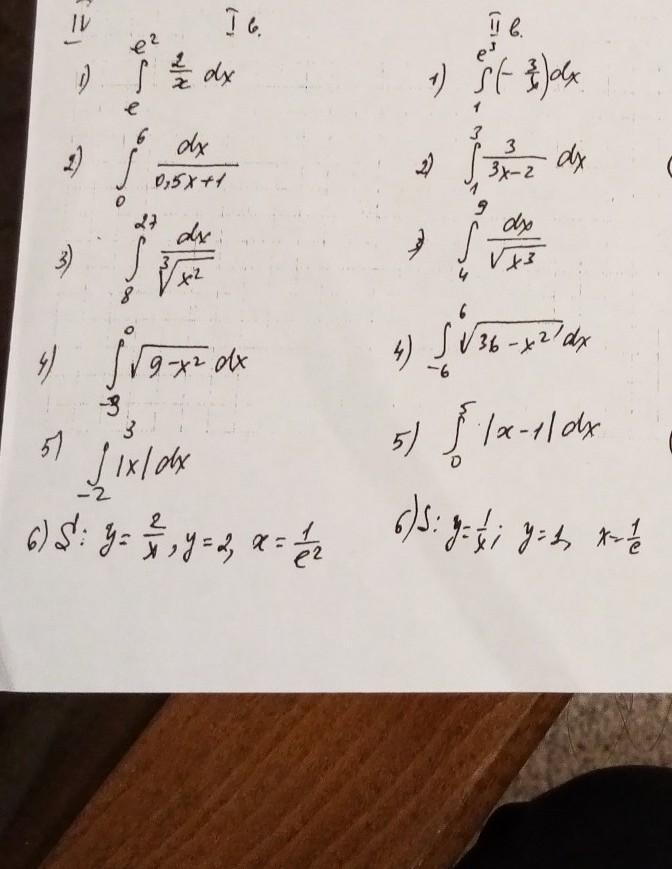 IV I в. II в.
1) ∫_e^{e²} 2/x dx
2) ∫_0^6 dx/(0,5x+1)
3) ∫_8^{27} dx/∛(x²)
4) ∫_{-3}^0 √(9-x²) dx
5) ∫_{-2}^3 |x| dx
6) S: y=2/x, y=2, x=1/e²
1) ∫_1^{e³} (-3/x) dx
2) ∫_1^3 3/(3x-2) dx
3) ∫_4^9 dx/√(x³)
4) ∫_{-6}^6 √(36-x²) dx
5) ∫_0^5 |x-1| dx
6) S: y=1/x; y=1, x=1/e